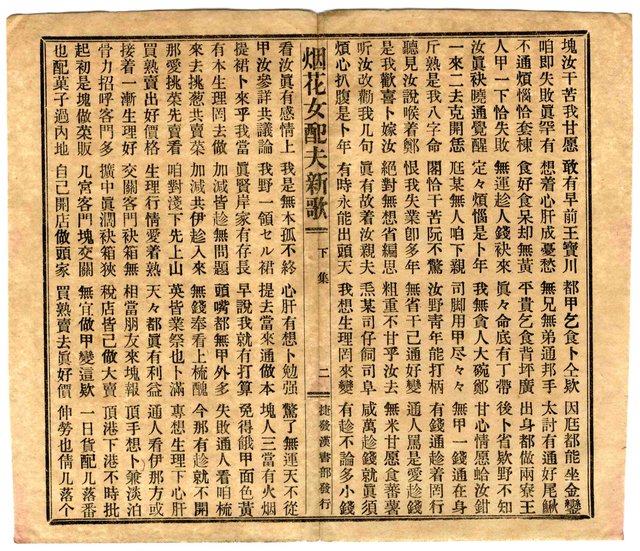 塊汝干苦我甘愿 敢有早前王寶川 都甲乞食卜仝欵 因厝都能坐金鑾
咱即失敗眞罕有 想着心肝成憂愁 無兄無弟通邦手 太討有通好尾鰍
不通煩惱恰套棟 食好食呆却無黃 平貴乞食背坪廣 出身都做兩寮王
人甲一下恰失敗 無運趁人錢袂來 眞々命底有丁帶 後卜省欵野不知
汝眞袂曉通覺醒 定々煩惱是卜年 我無貪人大碗鄭 甘心情愿蛤汝鉗
一來二去克開恁 厝某無人咱下親 司脚用甲尽々々 無甲一錢通在身
斤熟是我八字命 閣恰干苦阮不驚 汝野靑年能打柄 有錢通趁着罔行
聽見汝說喉着鄭 恨我失業卽多年 無省干己通好變 通人罵是愛趁錢
是我歡喜卜嫁汝 絕對無想省編思 粗重不甘乎汝去 無米甘愿食蕃薯
听汝改勸我几句 眞有故着汝親夫 某司仔飼司阜 咸萬趁錢就眞須
煩心扒腹是卜年 有時永能出頭天 我想生理罔來變 有趁不論多小錢
烟花女配夫新歌 下集 二 捷發漢書部發行
看汝眞有感情上 我是無本孤不終 心肝有想卜勉强 驚了無運天不從
甲汝參詳共議論 我野一領セル裙 提去當來通做本 塊人三當有火烟
提裙卜來乎我當 眞賢岸家有存長 早說我就有打算 免得餓甲面色黃
有本生理罔去做 加減皆趁無問題 頭嘴都無甲外多 失敗通人看咱梳
來去挑葱共賣菜 加減共伊趁入來 無錢奉看上梳醜 今那有趁就不開
那愛挑菜先賣看 咱對淺下先上山 英皆業祭也卜滿 專想生理下心肝
買熟賣出好價格 生理行情愛着熟 天々都眞有利益 通人看伊那方或
接着一漸生理好 交關客門袂箱無 相當朋友來塊報 頂手想卜兼淡泊
骨力招呼客門多 擴中眞濶袂箱狹 稅店皆己做大賣 頂港下港不時批
起初是塊做菜販 几宮客門塊交關 無宜做甲變這欵 一日貨配几落番
也配菓子過內地 自己開店做頭家 買熟賣去眞好價 伸勞也倩几落个